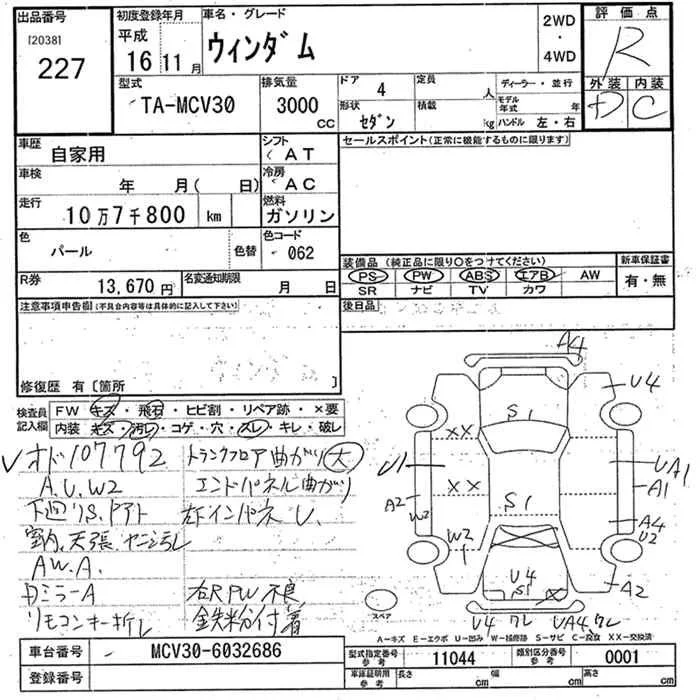 出品番号
[2038]
227
初度登録年月
平成
16年11月
車名・グレード
ウィンダム
2WD
・
4WD
評価点
R
外装 内装
D C
型式
TA-MCV30
排気量
3000 CC
ドア 4
定員 人
形状 セダン
積載 kg
ディーラー・並行
モデル年式 年
ハンドル 左・右
車歴
自家用
シフト
AT
車検
年 月( 日)
冷房
AC
走行
10万7千800 km
燃料
ガソリン
色
パール
色替
色コード
062
R券
13,670円
名変通知期限
月 日
セールスポイント(正常に機能するものに限ります)
装備品(純正品に限り○をつけてください)
PS PW ABS エアB AW
SR ナビ TV カワ
新車保証書
有・無
後日品
注意事項申告欄(不具合内容等は具体的に記入して下さい)
修復歴 有〔箇所
検査員記入欄
FW キズ・飛石・ヒビ割・リペア跡・×要
内装 キズ・汚レ・コゲ・穴・スレ・キレ・破レ
オド107792
A.U.W2
下回りS.
室内、天張
A.W.A.
Dミラー A
リモコンキー折レ
トランクフロア曲がり 大
エンドパネル曲がり
左インパネ U.
右R PW不良
鉄粉付着
A4
U4
S1
XX
U1
UA1
A1
XX
A2
W2
S1
W2
A4
U2
U4
S1
X
A2
スペア
U4 ワレ UA4.ワレ
A-キズ E-エクボ U-凹み W-補修跡 S-サビ C-腐食 XX-交換済
車台番号
MCV30-6032686
登録番号
型式指定番号 参考 11044
類別区分番号 参考 0001
車庫証明用 参考 長さ cm 幅 cm 高さ cm